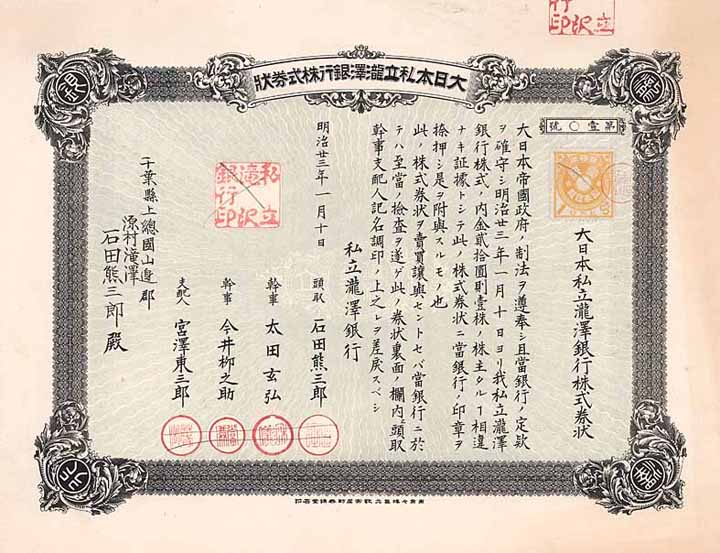 大日本私立瀧澤銀行株式券狀
第壹〇號
大日本私立瀧澤銀行株式券狀
大日本帝國政府ノ制法ヲ遵奉シ且當銀行ノ定欵
ヲ確守シ明治廿三年一月十日ヨリ我私立瀧澤
銀行株式ノ内金貳拾圓則壹株ノ株主タルヿ相違
ナキ証據トシテ此ノ株式券状ニ當銀行ノ印章ヲ
捺押シ是ヲ附與スルモノ也
此ノ株式券狀ヲ賣買讓與セントセバ當銀行ニ於
テハ至當ノ檢査ヲ遂ゲ此ノ券狀裏面ノ欄内ヘ頭取
幹事支配人記名調印ノ上之レヲ差戻スベシ
私立瀧澤銀行
明治廿三年一月十日
頭取 石田熊三郎
幹事 太田玄弘
幹事 今井柳之助
支配人 宮澤東三郎
千葉縣上總國山邊郡
源村滝澤
石田熊三郎殿
私立
滝沢
銀行
印